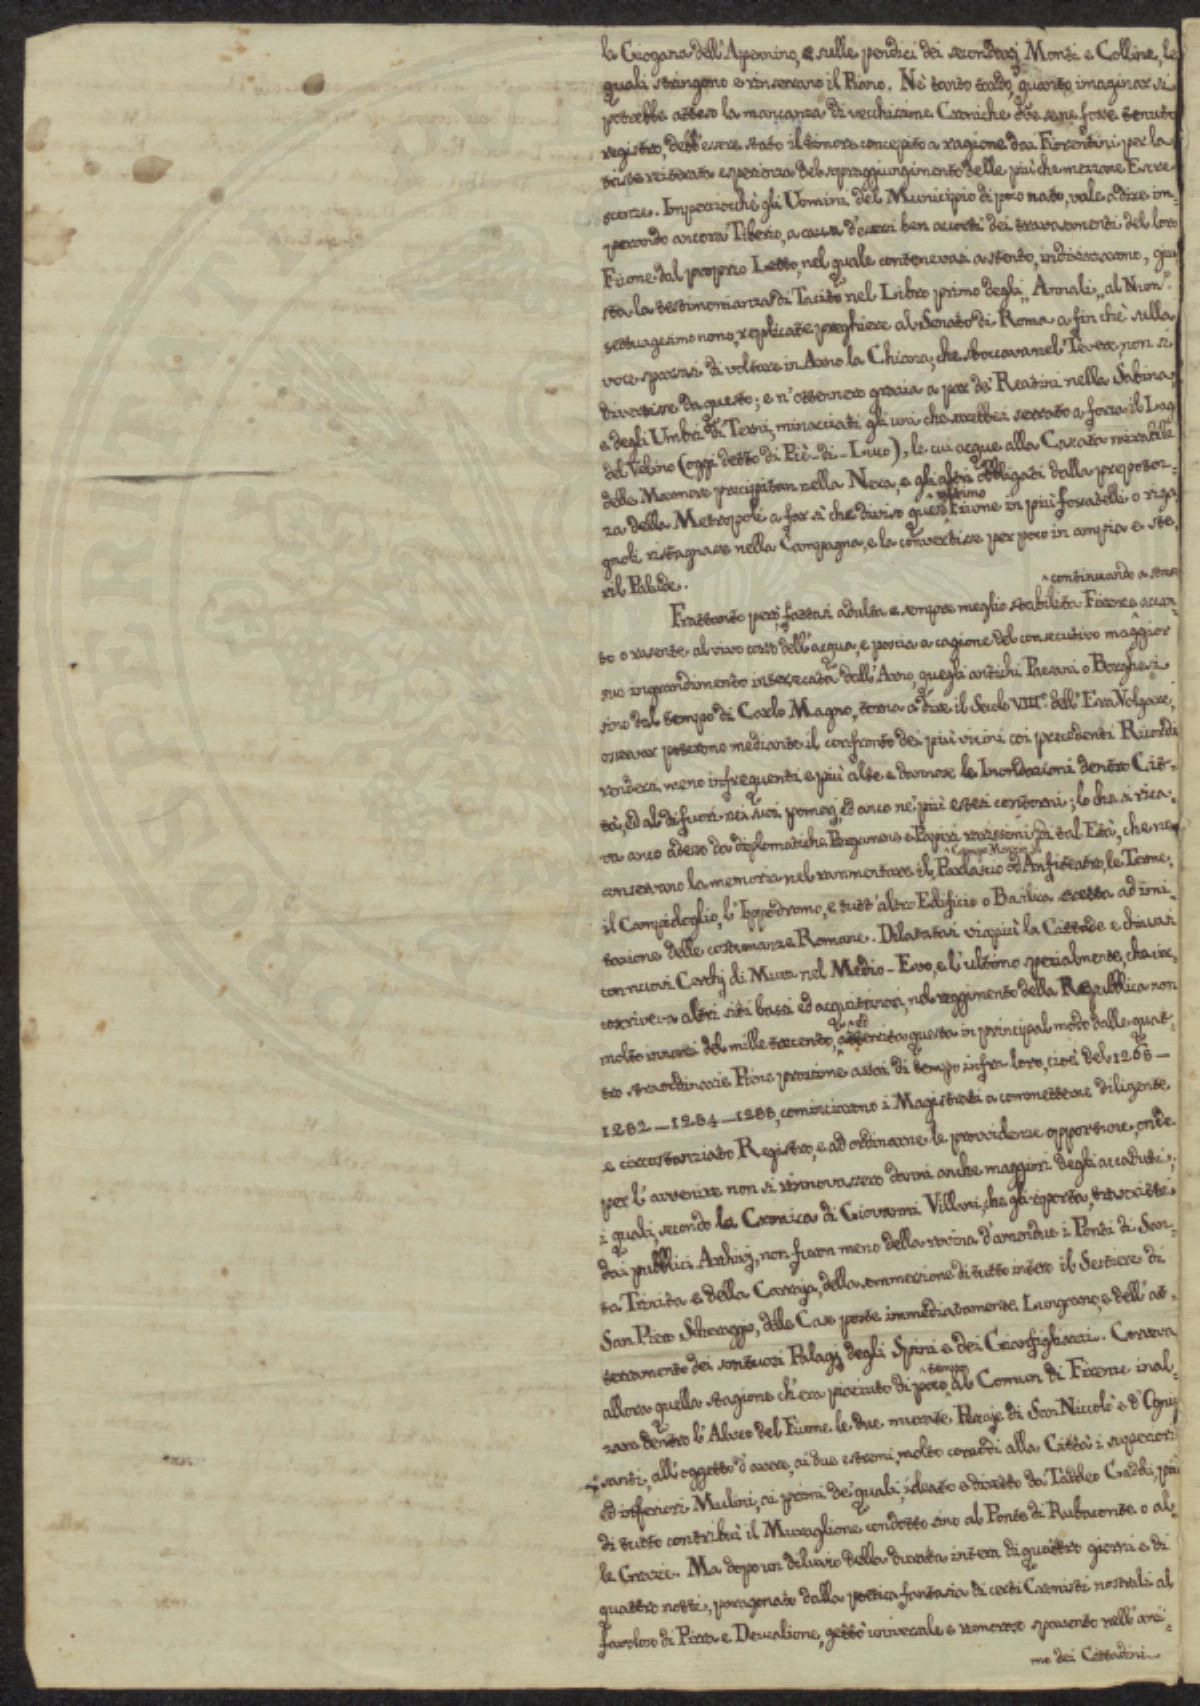 la Giogana dell'Apennino, e sulle pendici dei secondarj Monti e Colline, le
quali stringono e rinserrano il Piano. Nè tanto tardo, quanto imaginar si
potrebbe atteso la mancanza di vecchissime Croniche che ne fosse tenuto
registro, debb'essere stato il timore concepito a ragione dai Fiorentini per la
triste reiterata esperienza del sopraggiungimento delle più che mezzane Escre
scenze. Imperciocchè gli Uomini del Municipio di poco nato, vale a dire im-
perando ancora Tiberio, a causa d'essersi ben accorti dei travasamenti del loro
Fiume dal proprio Letto, nel quale contenevasi a stento, indirizzarono, giu
sta la testimonianza di Tacito nel Libro primo degli „Annali„ al Num.°
settuagesimo nono, replicate preghiere al Senato di Roma a fin chè sulla
voce sparsasi di voltare in Arno la Chiana, che sboccava nel Tevere, non si
divertisse da questo; e n'ottennero grazia a par de' Reatini nella Sabina,
e degli Umbri di Terni, minacciati gli uni che sarebbesi serrato a forza il Lag
del Velino (oggi detto di Piè-di-Luco), le cui acque alla Cascata mirabile
delle Marmore precipitan nella Nera, e gli altri obbligati dalla prepoten-
za della Metropoli a far sì che diviso quest'ultimo Fiume in più fossatelli o riga
gnoli ristagnasse nella Campagna, e la convertisse per poco in ampia e ste-
ril Palude.
continuando a stare
Frattanto però, fattasi adulta e sempre meglio stabilita Firenze accan-
to o rasente al vivo corso dell'acqua, e poscia a cagione del consecutivo maggior
suo ingrandimento intersecata dall'Arno, quegli antichi Paesani o Borghesi
sino dal tempo di Carlo Magno, torna a dire il Secolo VIII.° dell'Era Volgare,
osservar poterono mediante il confronto dei più vicini coi precedenti Ricordi
rendersi meno infrequenti e più alte e dannose le Inondazioni dentro Cit-
tà, ed al di fuori nei suoi pomerj, ed anco ne' più estesi contorni; lo che si rica-
va anco adesso da diplomatiche Pergamene e Papiri rarissimi di tal Età, che ne
conservano la memoria nel rammentare il Campo Marzio, il Parlascio od Anfiteatro, le Terme,
il Campidoglio, l'Ippodromo, e tutt'altro Edificio o Basilica eretta ad imi-
tazione delle costumanze Romane. Dilatatasi viepiù la Cittade e chiusasi
con nuovi Cerchj di Mura nel Medio-Evo, e l'ultimo specialmente, che cir-
coscriveva altri siti bassi ed acquitrinosi, nel reggimento della Repubblica non
molto innanzi del mille trecento, ed atterrita questa in principal modo dalle quat-
tro straordinarie Piene prossime assai di tempo infra loro, cioè del 1268 —
1282 — 1284 — 1288, cominciarono i Magistrati a commettere diligente
e circostanziato Registro, e ad ordinarne le provvidenze opportune, onde
per l'avvenire non si rinnovassero danni anche maggiori degli accaduti;
i quali, secondo la Cronica di Giovanni Villani, che gli riporta, trascritti
dai pubblici Archivj, non furon meno della rovina d'amendue i Ponti di San-
ta Trinita e della Carraja, della sommersione di tutto intero il Sestiere di
San Piero Scheraggio, delle Case poste immediatamente Lungarno, e dell'at-
terramento dei sontuosi Palagj degli Spini e dei Gianfigliazzi. Correva
allora quella stagione ch'era piaciuto di poco tempo al Comun di Firenze inal-
zare dentro l'Alveo del Fiume le due murate Pescaje di San Niccolò e d'Ognis-
santi, all'oggetto d'avere, ai due estremi, molto comodi alla Città i superiori
ed inferiori Mulini, ai primi de' quali, ideato e diretto da Taddeo Gaddi, più
di tutto contribuì il Muraglione condotto sino al Ponte di Rubaconte o al-
le Grazie. Ma dopo un diluvio della durata intera di quattro giorni e di
quattro notti, paragonato dalla poetica fantasia di certi Cronisti nostrali al
favoloso di Pirra e Deucalione, gettò universale e rumoroso spavento nell'ani-
mo dei Cittadini